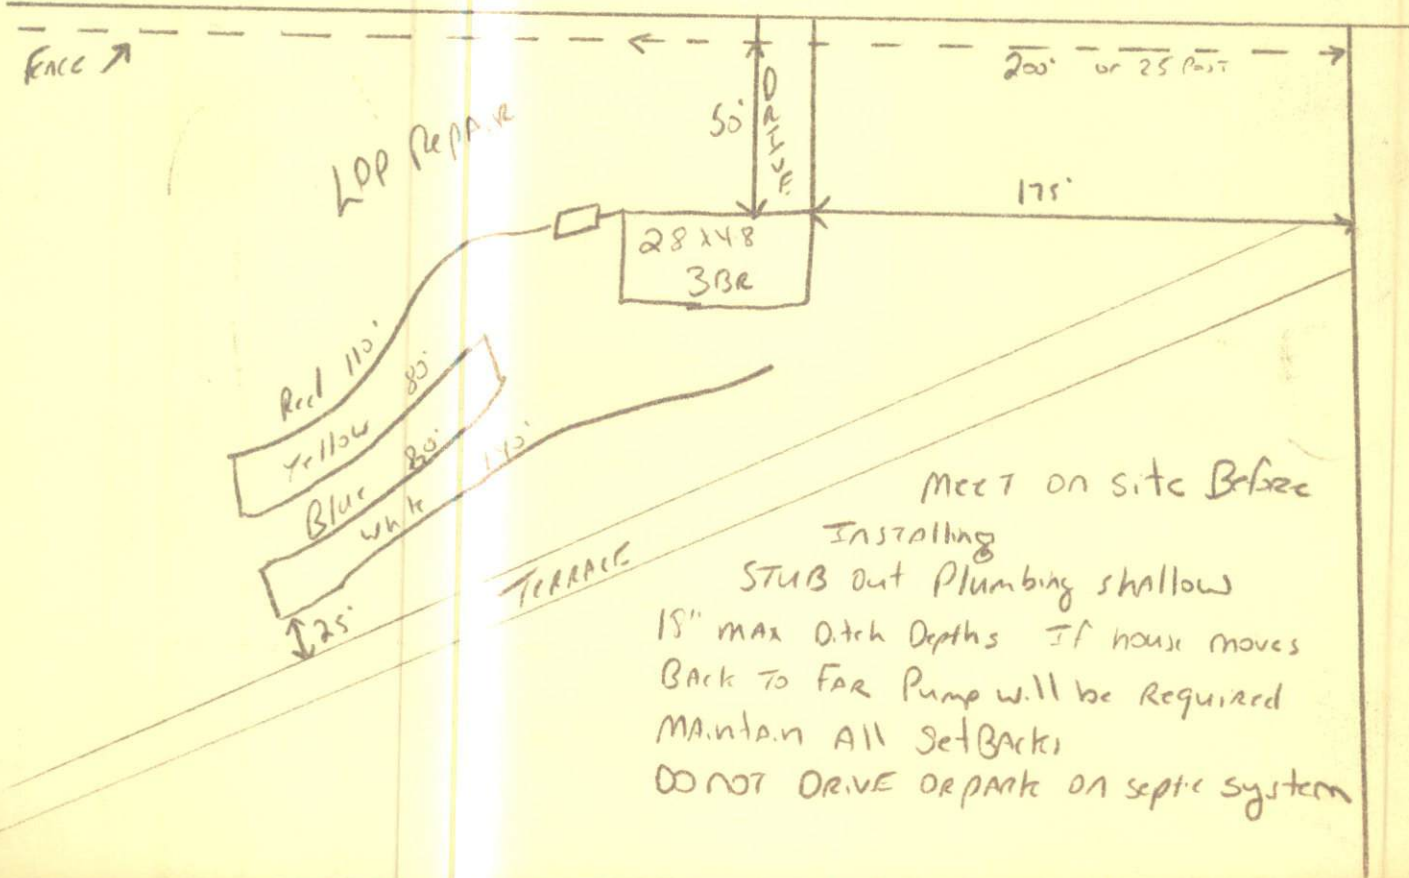 FENCE
200' or 25 Post
50'
DRIVE
LPP Repair
175'
28 x 48
3BR
Red 110'
Yellow 80'
Blue 80'
White 140'
25'
TERRACE
Meet on site Before
Installing
STUB out Plumbing shallow
18" MAX Ditch Depths If house moves
BACK TO FAR Pump will be Required
MAintAin All SetBACKs
DO NOT DRIVE OR PARK ON septic system